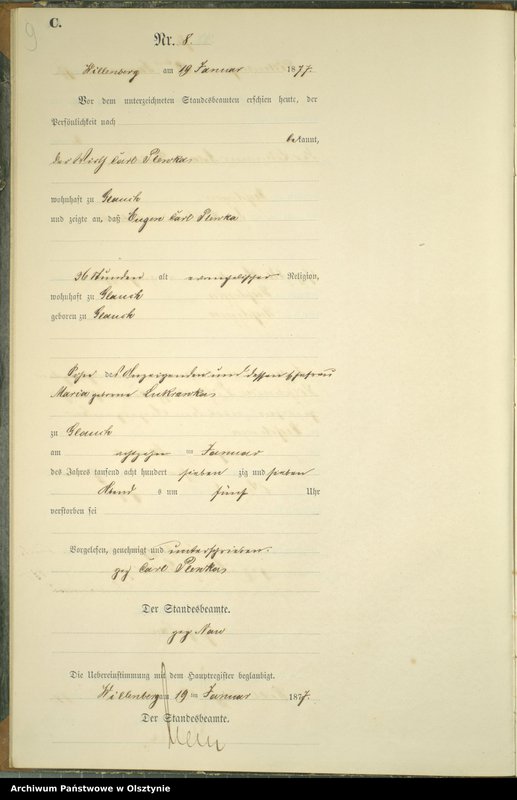 9
C.
Nr. 8.
Willenberg am 19 Januar 1877.
Vor dem unterzeichneten Standesbeamten erschien heute, der
Persönlichkeit nach
bekannt,
der Wirth Carl Plewkas
wohnhaft zu Glauch
und zeigte an, daß Eugen Carl Plewka
36 Stunden alt evangelischer Religion,
wohnhaft zu Glauch
geboren zu Glauch
Sohn des Anzeigenden und dessen Ehefrau
Maria geborne
zu Glauch
am achtzehn im Januar
des Jahres tausend acht hundert sieben zig und sieben
Abend s um fünf Uhr
verstorben sei
Vorgelesen, genehmigt und unterschrieben.
gez Carl Plewkas
Der Standesbeamte.
gez
Die Uebereinstimmung mit dem Hauptregister beglaubigt.
Willenberg am 19 im Januar 1877.
Der Standesbeamte.
Archiwum Państwowe w Olsztynie